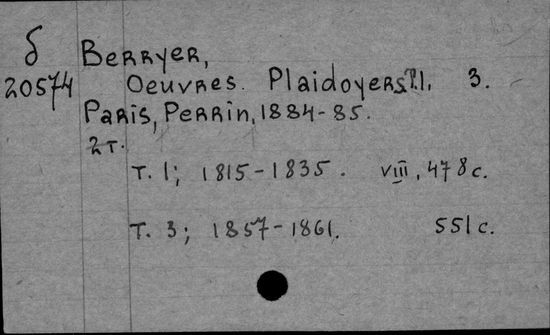 б
20574
Berryer,
Oeuvres. Plaidoyers T.1, 3.
Paris, Perrin, 1884-85.
2 т.
Т. 1; 1815-1835. VIII, 478 с.
Т. 3; 1857-1861. 551 с.